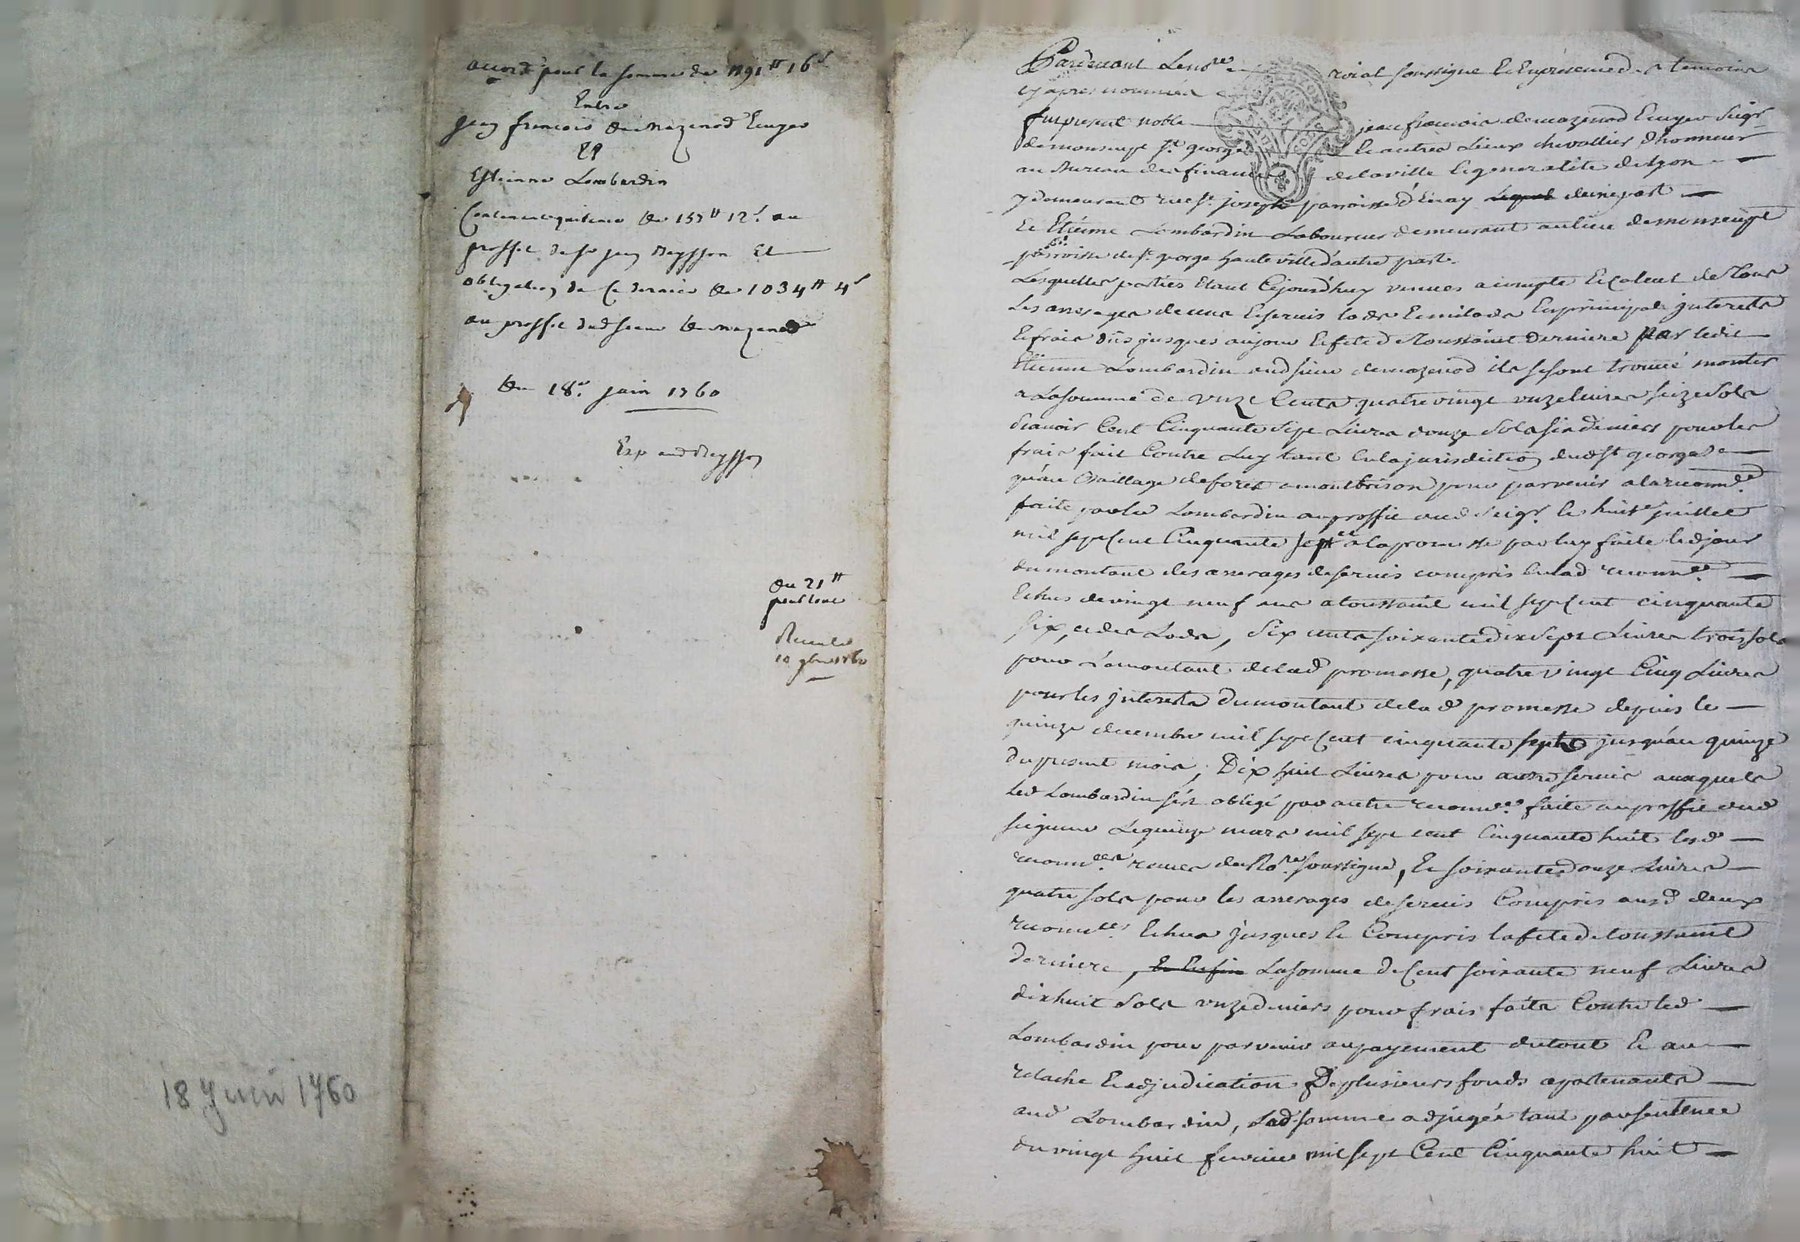 accord pour la somme de 1191 tt 16 s
Entre
Jean francois de mazenod Ecuyer
Et
Estienne Lombardin
Contenant quittance de 157 tt 12 s. au
proffit de sr jean Meysson Et
obligation de Ce dernier de 1034 tt 4 s
au proffit dud sieur de mazenod
du 18e. juin 1760
Exp aud Meysson
du 21 tt
pour tout
10 9bre 1760
18 Juin 1760
Pardevant Le nore roial soussigne Et En presence des temoins
cy apres nommes
fut present noble jean francois de mazenod Ecuyer Seigr
de monsupt st. george Et autres Lieux chevallier d'honneur
au Bureau des finances de la ville Et generalité de Lyon
y demeurant rue st. joseph parroisse d'Enay lequel d'une part
Et Etienne Lombardin Laboureur demeurant au lieu de monsupt
parroisse de st. george hauteville d'autre part.
Lesquelles parties Etant Cejourd'huy venues a compte Et Calcul de Tous
Les arrerages de cens Et servis lods Et milods En principal jnterets
Et frais dus jusques au jour Et fete de Toussaint derniere par ledit
Etienne Lombardin aud sieur demazenod ils se sont trouvé monter
a La somme de unze Cents quatre vingt unze livres seize Sols
Scavoir Cent Cinquante Sept Livres douze Sols six deniers pour les
frais fait Contre Luy tant En la jurisdiction dud st george
qu'au Baillage de forest a montbrison pour parvenir a la reconn.ce
faite par led Lombardin au proffit dud Seigr. le huite juillet
mil sept Cent Cinquante sept et a la promesse par luy faite led jour
du montant des arrerages de servis compris En lad reconn.ce
Echus de vingt neuf ans a toussaint mil sept Cent cinquante
Six, et des Lods, Six cents soixante dix Sept Livres trois sols
pour le montant de lad promesse, quatre vingt Cinq Livres
pour les jnterets du montant de lad promesse depuis le
quinze decembre mil sept Cent cinquante sept jusqu'au quinze
du present mois, Dix huit Livres pour autre servis auxquels
Led Lombardin s'est obligé par autre reconn.ce faite au proffit dud
seigneur Le quinze mars mil sept cent Cinquante huit lesd
reconn.ces recues du No.re soussigné, Et soixante douze Livres
quatre sols pour les arrerages de servis Compris ausd deux
reconn.ces Echus jusques Et Compris la fete de toussaint
derniere, Et Enfin La somme de Cent soixante neuf Livres
dix huit Sols unze deniers pour frais faits Contre led
Lombardin pour parvenir au payement du tout Et au
relache Et adjudication De plusieurs fonds apartenants
aud Lombardin, Lad somme adjugée tant par sentence
du vingt huit fevrier mil sept Cent Cinquante huit